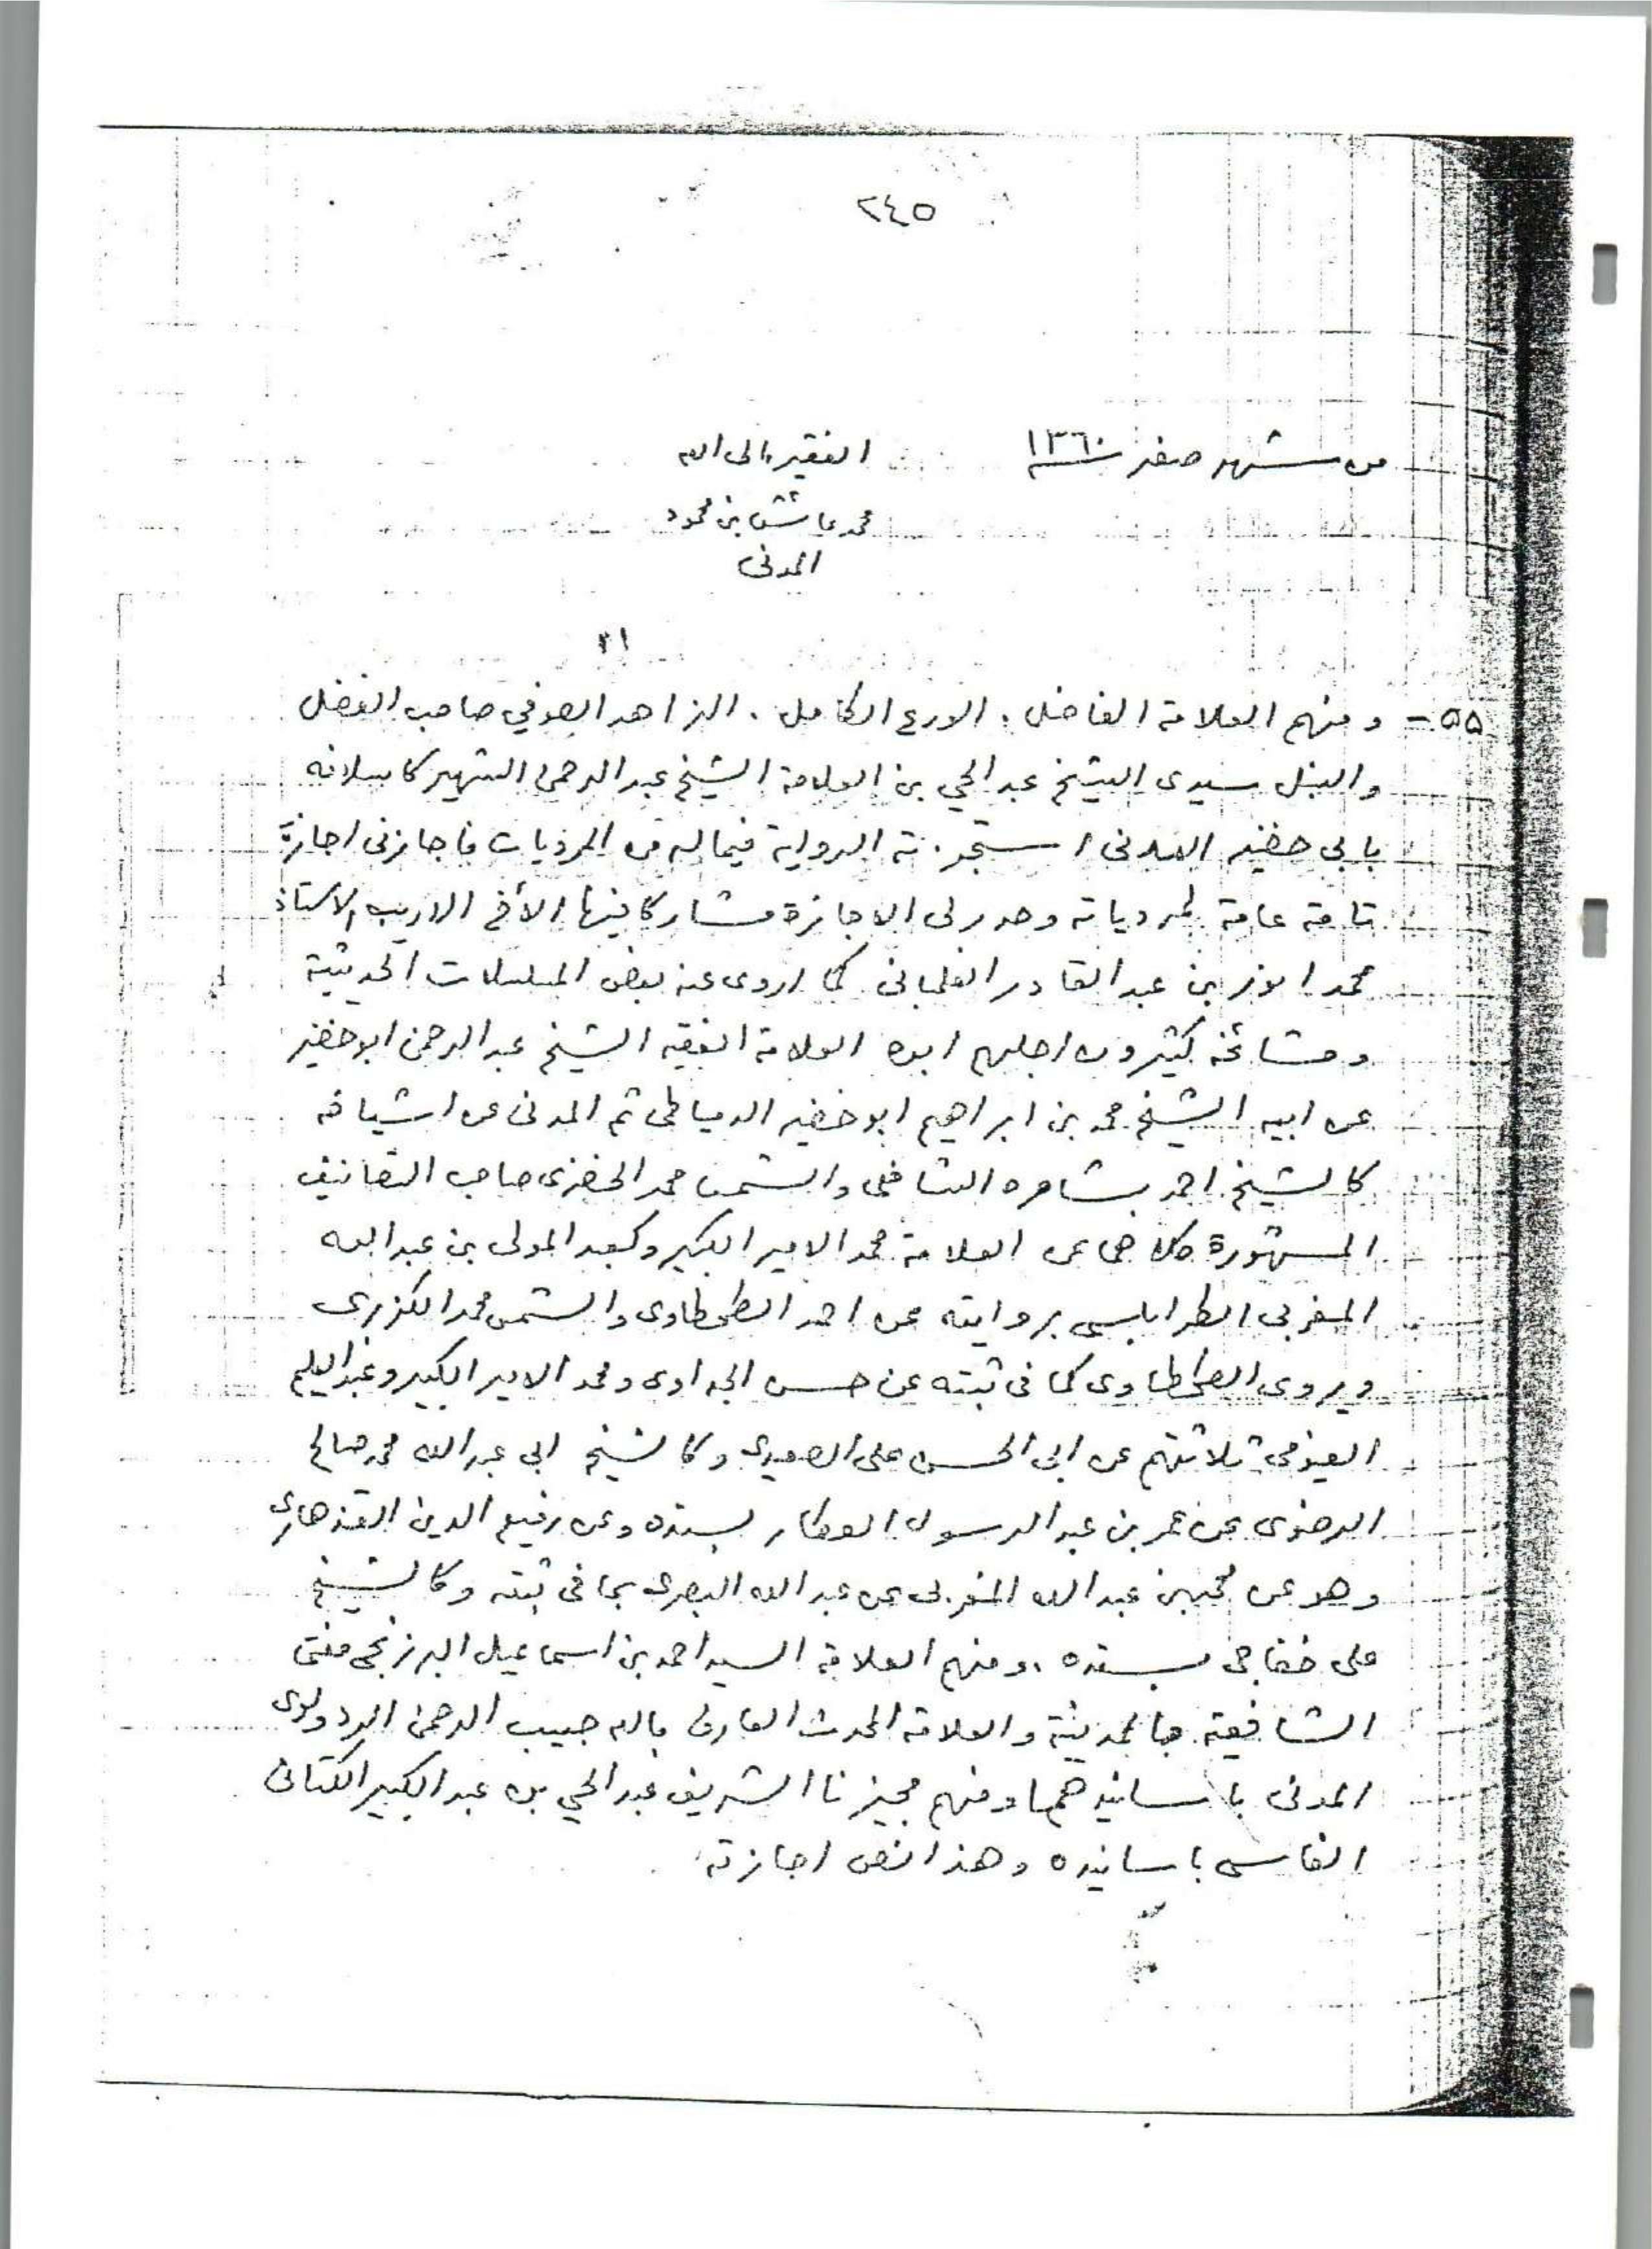 ٢٤٥
من شهر صفر ١٣٦٠
الفقير الى الله
محمد عاشق بن محمود
المدنى
٥٥ - ومنهم العلامة الفاضل . الورع الكامل . الزاهد الصوفي صاحب الفضل
والنبل سيدى الشيخ عبد الحي بن العلامة الشيخ عبد الرحمن الشهير كاسلافه
بابى خضير المدنى استجزته الرواية فيما له من المرويات فاجازنى اجازة
تامة عامة لمروياته وحرر لى الاجازة مشاركا فيها الأخ الاريب الاستاذ
محمد انور بن عبد القادر الفلمبانى كما اروى عنه بعض المسلسلات الحديثية
ومشائخه كثيرون اجلهم ابوه العلامة الفقيه الشيخ عبد الرحمن ابو خضير
عن ابيه الشيخ محمد بن ابراهيم ابو خضير الدمياطى ثم المدنى عن اشياخه
كالشيخ احمد بشاره الشافعى والشمس محمد الخضرى صاحب التصانيف
المشهورة كلاهما عن العلامة محمد الامير الكبير وكعبد المولى بن عبد الله
المغربى الطرابلسى بروايته عن احمد الطحطاوى والشمس محمد الكزبرى
ويروى الطحطاوى كما فى ثبته عن حسن الجداوى ومحمد الامير الكبير وعبد العليم
الفيومى ثلاثتهم عن ابى الحسن على الصعيدى وكالشيخ ابى عبد الله محمد صالح
الرضوى عن عمر بن عبد الرسول العطار بسنده وعن رفيع الدين القندهارى
وهو عن محمد بن عبد الله المغربى عن عبد الله البصرى بما فى ثبته وكالشيخ
على خفاجى بسنده . ومنهم العلامة السيد احمد بن اسماعيل البرزنجى مفتى
الشافعية بالمدينة والعلامة المحدث العارف بالله حبيب الرحمن الردولوى
المدنى باسانيدهما ومنهم مجيزنا الشريف عبد الحي بن عبد الكبير الكتانى
الفاسى باسانيده وهذا نص اجازته